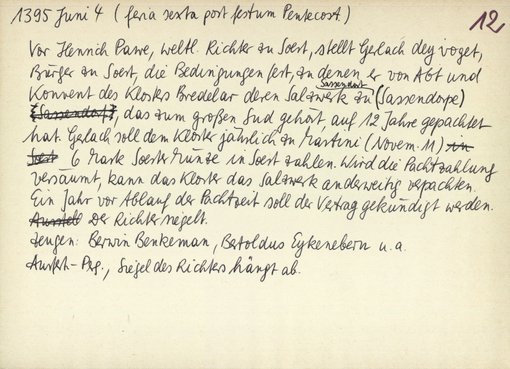 1395 Juni 4 (feria sexta post festum Pentecost)
12
Vor Henrich Pawe, weltl. Richter zu Soest, stellt Gerlach dey voget,
Bürger zu Soest, die Bedingungen fest, zu denen er von Abt und
Sassendorf
Konvent des Klosters Bredelar deren Salzwerk zu (Sassendorpe)
(Sassendorf), das zum großen Sud gehört, auf 12 Jahre gepachtet
hat. Gerlach soll dem Kloster jährlich zu Martini (Novem. 11) in
Soest 6 Mark Soester Münze in Soest zahlen. Wird die Pachtzahlung
versäumt, kann das Kloster das Salzwerk anderweitig verpachten.
Ein Jahr vor Ablauf der Pachtzeit soll der Vertrag gekündigt werden.
Ausstell Der Richter siegelt.
Zeugen: Berwin Benkeman, Bertoldus Eykenebern u.a.
Ausfert.-Prg., Siegel des Richters hängt ab.